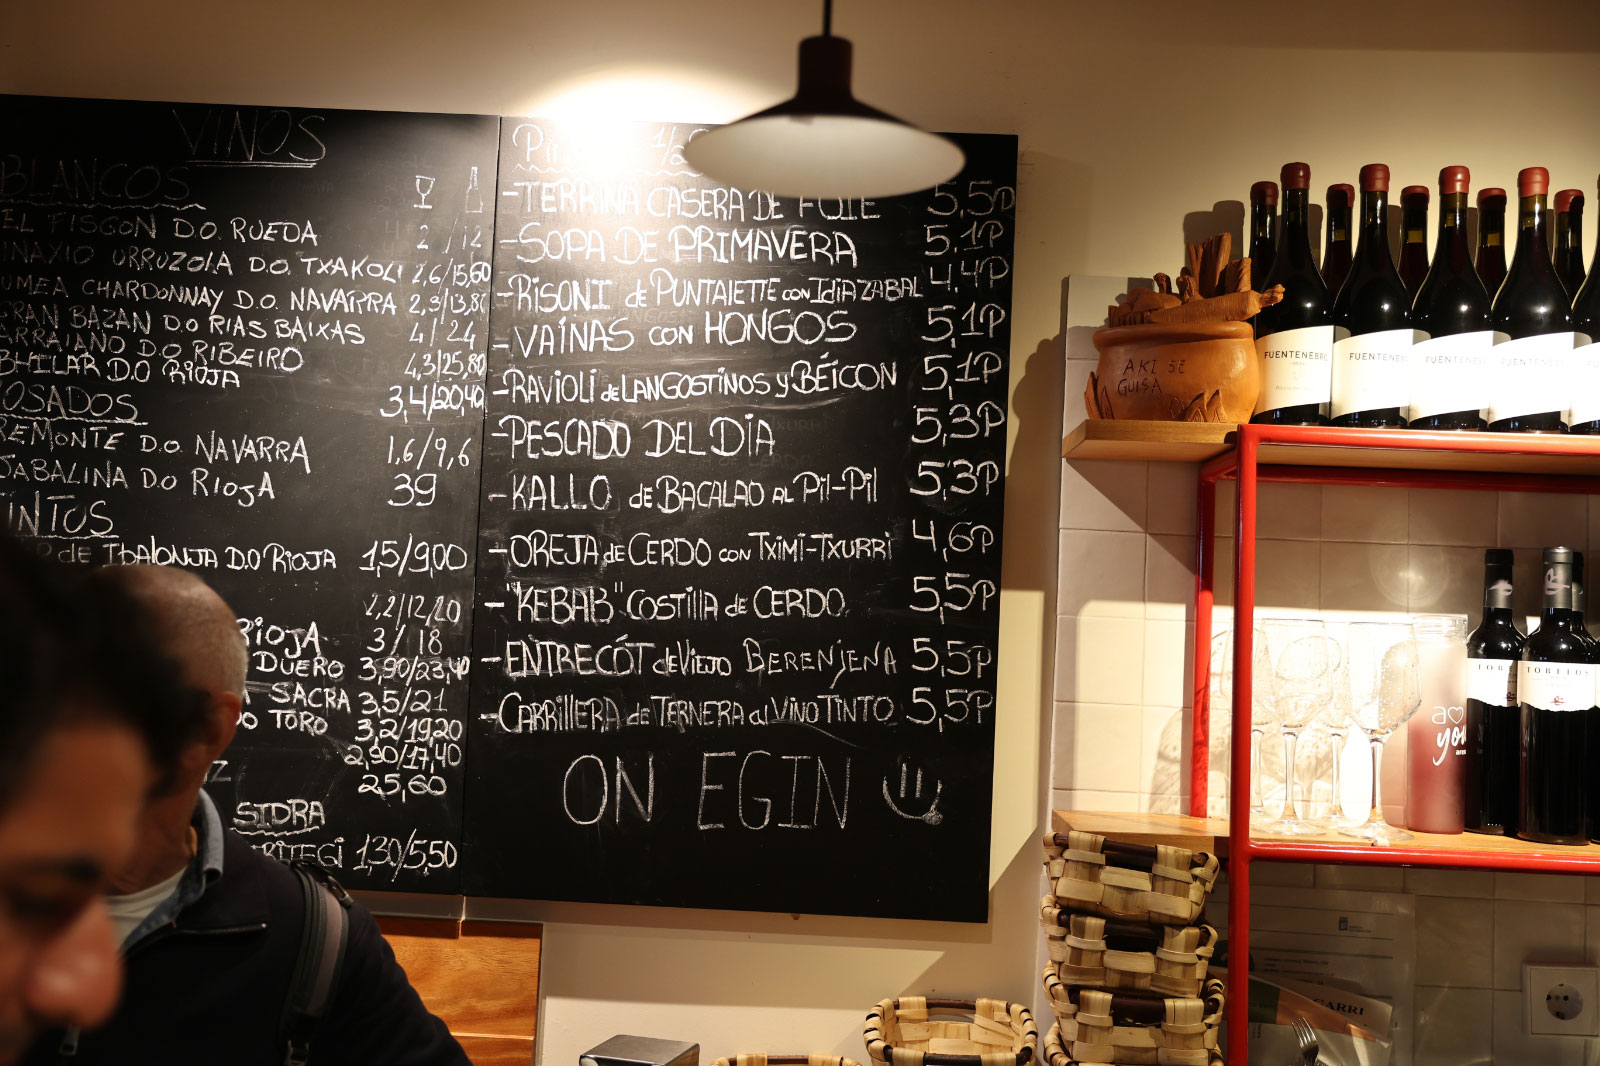 VINOS
BLANCOS
EL FISGON D.O. RUEDA 2/12
URRUZOLA D.O. TXAKOLI 2,6/15,60
CHARDONNAY D.O. NAVARRA 2,3/13,8
BAZAN D.O RIAS BAIXAS 4/24
D.O RIBEIRO 4,3/25,80
D.O RIOJA 3,4/20,40
OSADOS
REMONTE D.O. NAVARRA 1,6/9,6
JABALINA D.O RIOJA 39
INTOS
de D.O RIOJA 1,5/9,00
2,2/12,20
RIOJA 3/18
DUERO 3,90/23,40
SACRA 3,5/21
TORO 3,2/19,20
2,90/17,40
25,60
SIDRA
1,30/5,50
1/2
-TERRINA CASERA DE FOIE 5,5P
-SOPA DE PRIMAVERA 5,1P
-RISONI de PUNTALETTE con IDIAZABAL 4,4P
-VAÍNAS con HONGOS 5,1P
-RAVIOLI de LANGOSTINOS y BÉICON 5,1P
-PESCADO DEL DÍA 5,3P
-KALLO de BACALAO AL PIL-PIL 5,3P
-OREJA de CERDO con TXIMI-TXURRI 4,6P
-"KEBAB" COSTILLA de CERDO 5,5P
-ENTRECÓT de VIEJO BERENJENA 5,5P
-CARRILLERA de TERNERA al VINO TINTO 5,5P
ON EGIN
AKI SE
GUISA
FUENTENEBRO
FUENTENEBR
FUENTENEB
FUENTENEB
F
TOBE
TOBELOS
a
you
GARRI